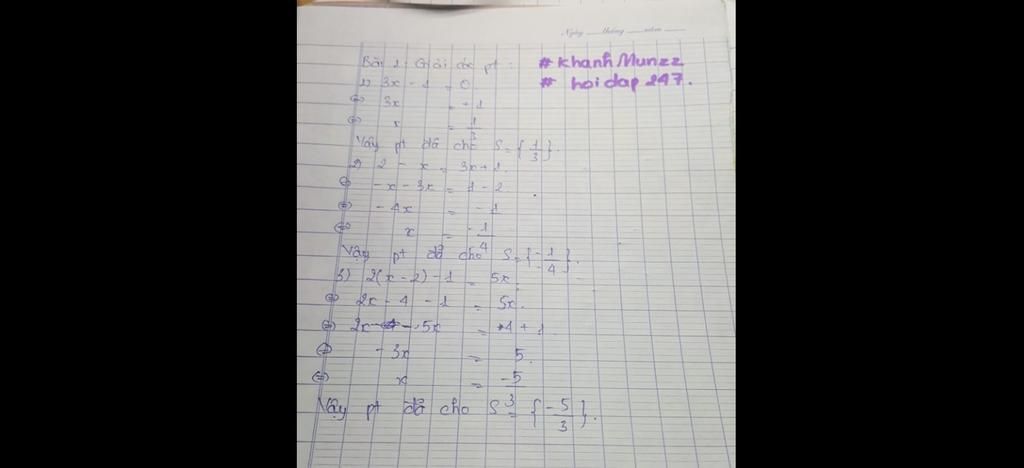 Ngày tháng năm
Bài 1 Giải các pt:
# Khanh Munzz
# hoidap 247.
1) 3x - 1 = 0
⇔ 3x = +1
⇔ x = 1/3
Vậy pt đã cho S = {1/3}.
2) 2 - x = 3x + 1.
⇔ -x - 3x = 1 - 2
⇔ -4x = -1
⇔ x = -1/4
Vậy pt đã cho S = {-1/-4}.
3) 2(x - 2) - 1 = 5x.
⇔ 2x - 4 - 1 = 5x.
⇔ 2x - 5x = 4 + 1
⇔ -3x = 5.
⇔ x = -5/3
Vậy pt đã cho S = {-5/3}.